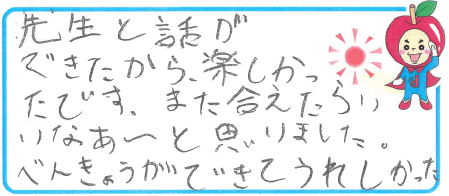 先生と話が
できたから、楽しかっ
たです。また合えたらい
いなあ〜と思いました。
べんきょうができてうれしかった